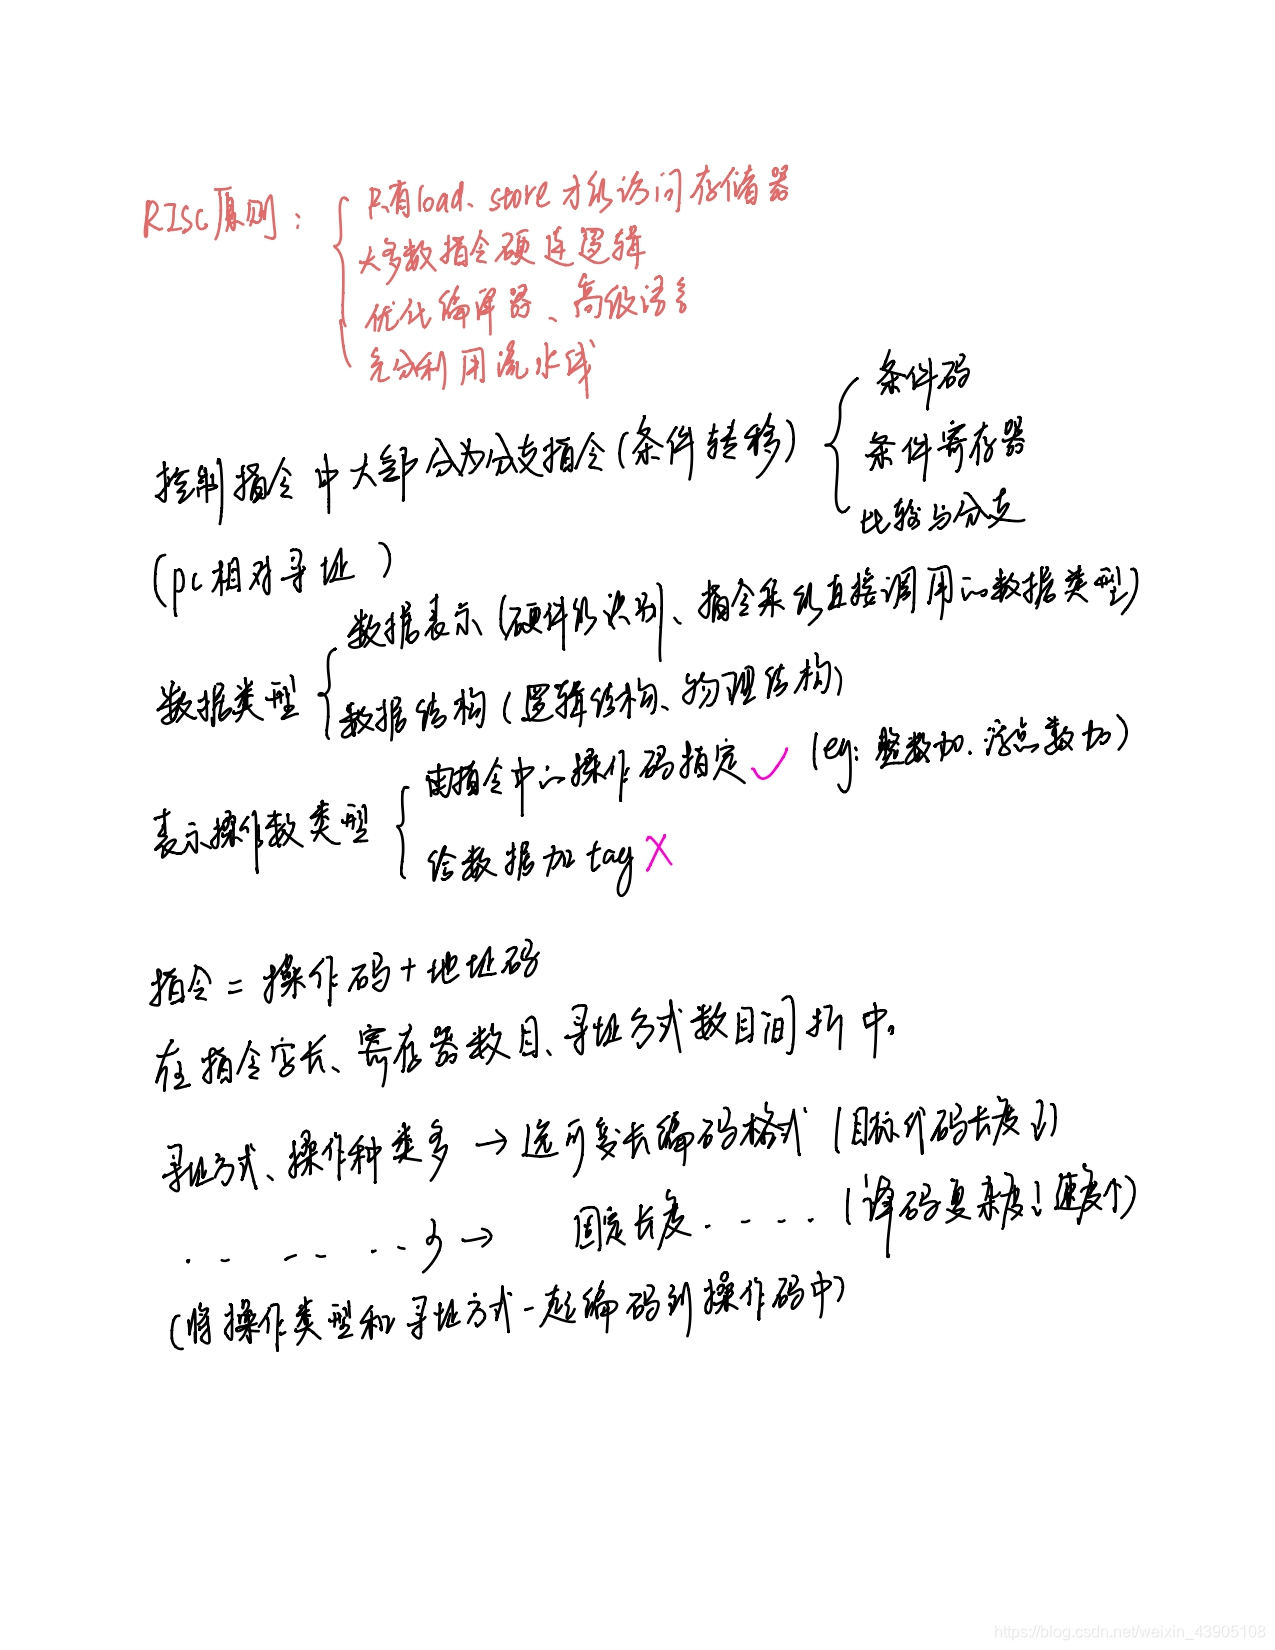 RISC原则：
只有load、store才能访问存储器
大多数指令硬连逻辑
优化编译器、高级语言
充分利用流水线
控制指令中大部分为分支指令(条件转移)
条件码
条件寄存器
比较与分支
(pc相对寻址)
数据类型
数据表示(硬件能识别、指令集能直接调用的数据类型)
数据结构(逻辑结构、物理结构)
表示操作数类型
由指令中的操作码指定✓ (eg: 整数加.浮点数加)
给数据加tag X
指令=操作码+地址码
在指令字长、寄存器数目、寻址方式数目间折中。
寻址方式、操作种类多→选可变长编码格式(目标代码长度↓)
.. -- ..-少→ 固定长度.... (译码复杂度↓速度↑)
(将操作类型和寻址方式一起编码到操作码中)
https://blog.csdn.net/weixin_43905108